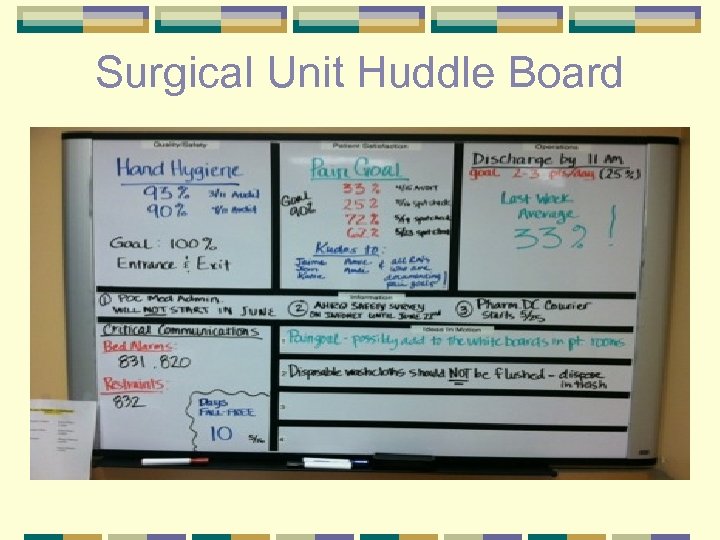 Surgical Unit Huddle Board
Quality/Safety
Hand Hygiene
93% 3/11 Audit
90%
Goal: 100%
Entrance & Exit
Patient Satisfaction
Pain Goal
Goal 90%
33% 4/15 Audit
25% spot check
72% 5/19 spot check
62% 5/23 spot check
Kudos to:
Jaime
& all RNs
who are
documenting
pain goals
Operations
Discharge by 11 Am
goal 2-3 pts/day (25%)
Last Week
Average
33%!
Information
① POC Med Admin
WILL NOT START IN JUNE
② AHRQ SAFETY SURVEY
ON INTRANET UNTIL JUNE
③ Pharm DC Courier
starts 5/25
Critical Communications
Bed Alarms:
831, 820
Restraints:
832
Days
FALL-FREE
10
Ideas in Motion
1 Pain goal - possibly add to the white boards in pt rooms
2 Disposable washcloths should NOT be flushed - dispose
in trash
3
4